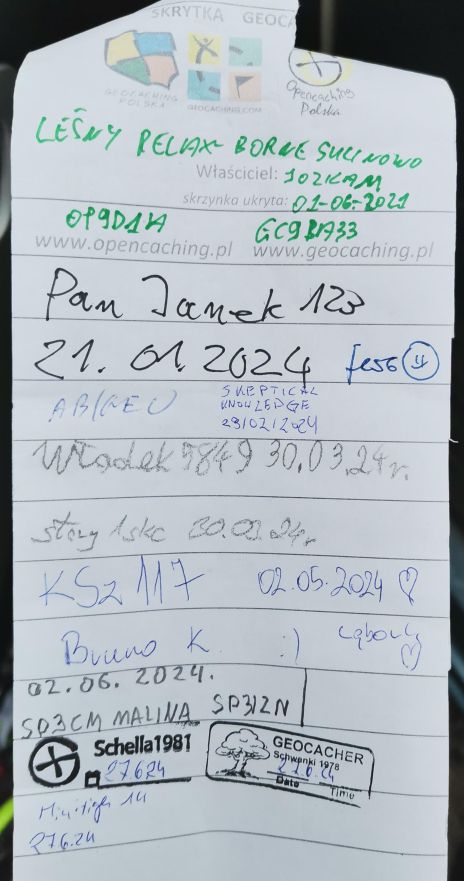 SKRYTKA GEOCA
GEOCACHING
POLSKA
GEOCACHING.COM
Opencaching
Polska
LEŚNY RELAX- BORNE SULINOWO
Właściciel: JOZKAM
skrzynka ukryta: 01-06-2021
OP9D1A GC9BA33
www.opencaching.pl www.geocaching.pl
Pan Janek 123
21.01.2024
AB/GEO SKEPTICAL
KNOWLEDGE
29/02/2024
Władek 5849 30.03.24r.
stary 30.03.24r
KSz 117 02.05.2024 ♡
Bruno K. :)
02.06.2024.
SP3CM MALINA SP3IZN
Schella1981
27624
GEOCACHER
Schwenki 1978
Date Time
27.6.24